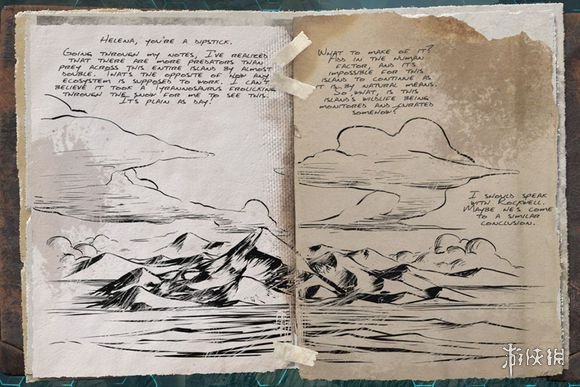 HELENA, YOU'RE A DIPSTICK.
GOING THROUGH MY NOTES, I'VE REALIZED
THAT THERE ARE MORE PREDATORS THAN
PREY ACROSS THIS ENTIRE ISLAND BY ALMOST
DOUBLE. THAT'S THE OPPOSITE OF HOW ANY
ECOSYSTEM IS SUPPOSED TO WORK. I CAN'T
BELIEVE IT TOOK A TYRANNOSAURUS FROLICKING
THROUGH THE SNOW FOR ME TO SEE THIS.
IT'S PLAIN AS DAY!
WHAT TO MAKE OF IT?
ADD IN THE HUMAN
FACTOR, AND IT'S
IMPOSSIBLE FOR THIS
ISLAND TO CONTINUE AS
IT IS BY NATURAL MEANS.
SO WHAT, IS THIS
ISLAND'S WILDLIFE BEING
MONITORED AND CURATED
SOMEHOW?
I SHOULD SPEAK
WITH ROCKWELL.
MAYBE HE'S COME
TO A SIMILAR
CONCLUSION.
游侠网